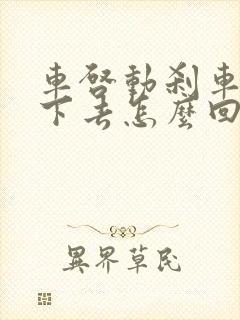 車啓動剎車
下去怎麼回
異界草民